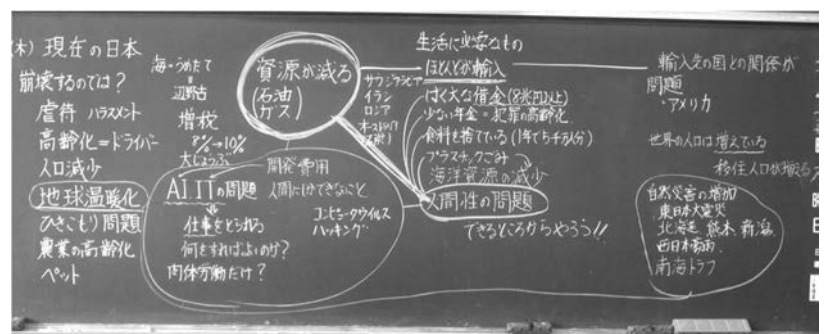 (木) 現在の日本
崩壊するのでは？
虐待 ハラスメント
高齢化＝ドライバー
人口減少
地球温暖化
ひきこもり問題
農業の高齢化
ペット
海・うめたて
辺野古
増税
8％→10％
大じょうぶ
資源が減る
(石油
ガス)
開発費用
AI ITの問題
人間にしかできないこと
仕事をとられる
何をすればよいのか？
肉体労働だけ？
コンピュータウイルス
ハッキング
サウジアラビア
イラン
ロシア
生活に必要なもの
ほとんどが輸入
ばく大な借金(8兆円以上)
少ない年金＝犯罪の高齢化
食料を捨てている(1年で5千万人分)
プラスチックごみ
海洋資源の減少
人間性の問題
できるところからやろう!!
輸入先の国との関係が
問題
・アメリカ
世界の人口は増えている
移住人口が増える
自然災害の増加
東日本大震災
北海道 熊本 新潟
西日本豪雨
南海トラフ